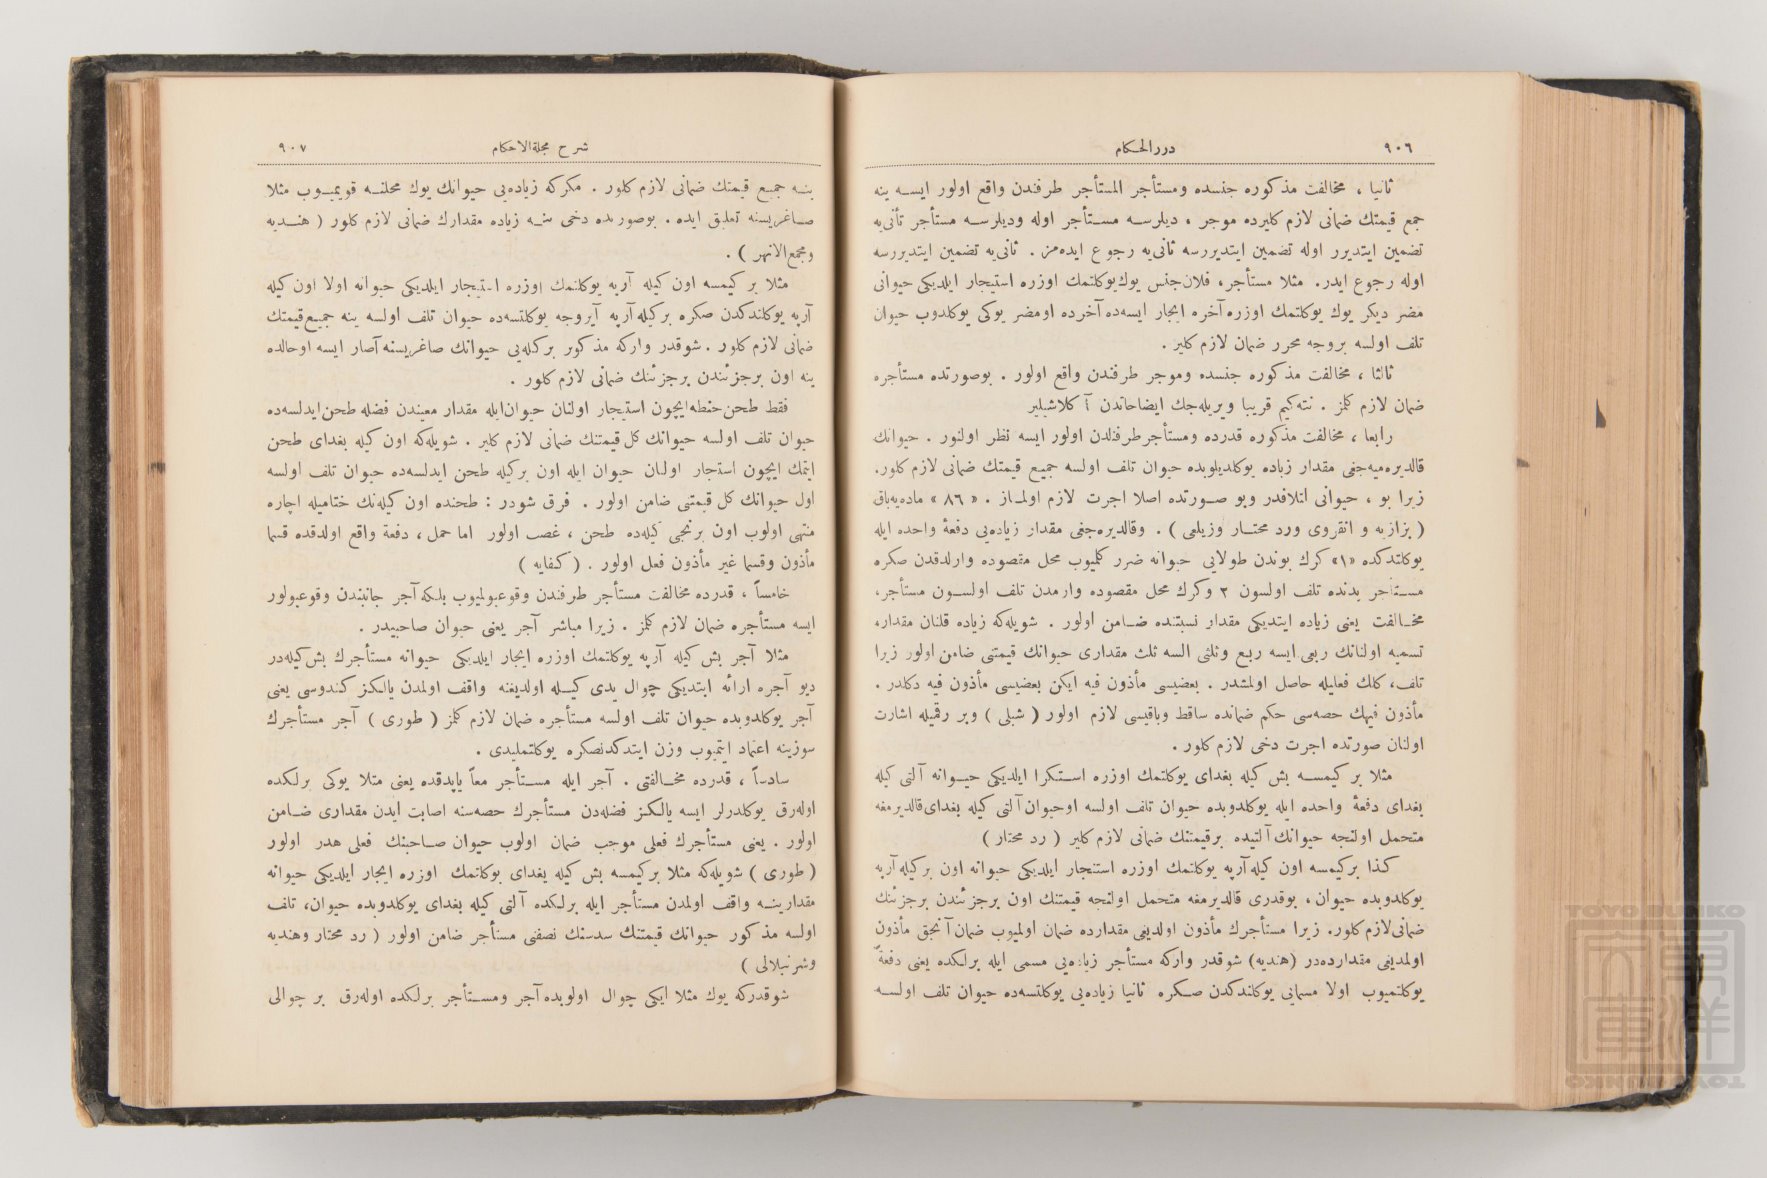 ٩٠٦
دررالحكام
ثانيا ، مخالفت مذكوره جنسده ومستأجر المستأجر طرفندن واقع اولور ايسه ينه
جمع قيمتك ضمانى لازم كليرده موجر ، ديلرسه مستأجر اوله وديلرسه مستأجر ثانى‌يه
تضمين ايتديرر اوله تضمين ايتديررسه ثانى‌يه رجوع ايده‌مز . ثانى‌يه تضمين ايتديررسه
اوله رجوع ايدر. مثلا مستأجر، فلان جنس يوك يوكلتمك اوزره استيجار ايلديكى حيوانى
مضر ديكر يوك يوكلتمك اوزره آخره ايجار ايسه‌ده آخرده اومضر يوكى يوكلدوب حيوان
تلف اولسه بروجه محرر ضمان لازم كلير .
ثالثا ، مخالفت مذكوره جنسده وموجر طرفندن واقع اولور . بوصورتده مستأجره
ضمان لازم كلمز . نته‌كيم قريبا ويريله‌جك ايضاحاتدن آكلاشيلير
رابعا ، مخالفت مذكوره قدرده ومستأجر طرفندن اولور ايسه نظر اولنور . حيوانك
قالديره‌ميه‌جغى مقدار زياده يوكلديلوبده حيوان تلف اولسه جميع قيمتك ضمانى لازم كلور.
زيرا بو ، حيوانى اتلافدر وبو صورتده اصلا اجرت لازم اولماز . « ٨٦ » ماده‌يه‌باق
( بزازيه و انقروى ورد محتار وزيلعى ) . وقالديره‌جغى مقدار زياده‌يى دفعةً واحده ايله
يوكلتدكده «١» كرك بوندن طولايى حيوانه ضرر كلميوب محل مقصوده وارلدقدن صكره
مستأجر يدنده تلف اولسون ٢ وكرك محل مقصوده وارمدن تلف اولسون مستأجر،
مخالفت يعنى زياده ايتديكى مقدار نسبتنده ضامن اولور . شويله‌كه زياده قلنان مقدار،
تسميه اولنانك ربعى ايسه ربع وثلثى ايسه ثلث مقدارى حيوانك قيمتنى ضامن اولور زيرا
تلف، كلك فعليله حاصل اولمشدر . بعضيسى مأذون فيه ايكن بعضيسى مأذون فيه دكلدر .
مأذون فيهك حصه‌سى حكم ضمانده ساقط وباقيسى لازم اولور ( شبلى ) وبر رقميله اشارت
اولنان صورتده اجرت دخى لازم كلور .
مثلا بر كيمسه بش كيله بغداى يوكلتمك اوزره استكرا ايلديكى حيوانه آلتى كيله
بغداى دفعةً واحده ايله يوكلدوبده حيوان تلف اولسه اوحيوان آلتى كيله بغداى قالديرمغه
متحمل اولنجه حيوانك آلتيده برقيمتنك ضمانى لازم كلير ( رد محتار )
كذا بركيمسه اون كيله آرپه يوكلتمك اوزره استنجار ايلديكى حيوانه اون بركيله آرپه
يوكلدوبده حيوان ، بوقدرى قالديرمغه متحمل اولنجه قيمتنك اون برجزئندن برجزئنك
ضمانى لازم كلور. زيرا مستأجرك مأذون اولديغى مقدارده ضمان اولميوب ضمان آنجق مأذون
اولمديغى مقدارده‌در (هنديه) شوقدر واركه مستأجر زياده‌يى مسمى ايله برلكده يعنى دفعةً
يوكلتميوب اولا مسمايى يوكلتدكدن صكره ثانيا زياده‌يى يوكلتسه‌ده حيوان تلف اولسه
شرح مجلة‌الاحكام
٩٠٧
ينه جميع قيمتك ضمانى لازم كلور . مكركه زياده‌يى حيوانك يوك محلنه قويميوب مثلا
صاغريسنه تعليق ايده . بوصورنده دخى ينه زياده مقدارك ضمانى لازم كلور ( هنديه
ومجمع‌الانهر ) .
مثلا بر كيمسه اون كيله آرپه يوكلتمك اوزره استيجار ايلديكى حيوانه اولا اون كيله
آرپه يوكلتدكدن صكره بركيله آرپه آيروجه يوكلتسه‌ده حيوان تلف اولسه ينه جميع قيمتك
ضمانى لازم كلور . شوقدر واركه مذكور بركيله‌يى حيوانك صاغريسنه آصار ايسه اوحالده
ينه اون برجزئندن برجزئنك ضمانى لازم كلور .
فقط طحن حنطه‌ايچون استيجار اولنان حيوان‌ايله مقدار معيندن فضله طحن ايدلسه‌ده
حيوان تلف اولسه حيوانك كل قيمتنك ضمانى لازم كلير . شويله‌كه اون كيله بغداى طحن
ايتمك ايچون استجار اولنان حيوان ايله اون بركيله طحن ايدلسه‌ده حيوان تلف اولسه
اول حيوانك كل قيمتنى ضامن اولور . فرق شودر : طحنده اون كيله‌نك ختاميله اجاره
منتهى اولوب اون برنجى كيله‌ده طحن ، غصب اولور اما حمل ، دفعة واقع اولدقده قسما
مأذون وقسما غير مأذون فعل اولور . ( كفايه )
خامساً ، قدرده مخالفت مستأجر طرفندن وقوعبولميوب بلكه آجر جانبندن وقوعبولور
ايسه مستأجره ضمان لازم كلمز . زيرا مباشر آجر يعنى حيوان صاحبيدر .
مثلا آجر بش كيله آرپه يوكلتمك اوزره ايجار ايلديكى حيوانه مستأجرك بش كيله‌در
ديو آجره ارائه ايتديكى چوال يدى كيله اولديغنه واقف اولمدن يالكز كندوسى يعنى
آجر يوكلدوبده حيوان تلف اولسه مستأجره ضمان لازم كلمز ( طورى ) آجر مستأجرك
سوزينه اعتماد ايتميوب وزن ايتدكدنصكره يوكلتمليدى .
سادساً ، قدرده مخالفتى . آجر ايله مستأجر معاً ياپدقده يعنى مثلا يوكى برلكده
اوله‌رق يوكلدرلر ايسه يالكز فضله‌دن مستأجرك حصه‌سنه اصابت ايدن مقدارى ضامن
اولور . يعنى مستأجرك فعلى موجب ضمان اولوب حيوان صاحبنك فعلى هدر اولور
( طورى ) شويله‌كه مثلا بركيمسه بش كيله بغداى يوكلتمك اوزره ايجار ايلديكى حيوانه
مقدارينه واقف اولمدن مستأجر ايله برلكده آلتى كيله بغداى يوكلدوبده حيوان، تلف
اولسه مذكور حيوانك قيمتنك سدسنك نصفنى مستأجر ضامن اولور ( رد محتار وهنديه
وشرنبلالى )
شوقدركه يوك مثلا ايكى چوال اولوبده آجر ومستأجر برلكده اوله‌رق بر چوالى
TOYO BUNKO